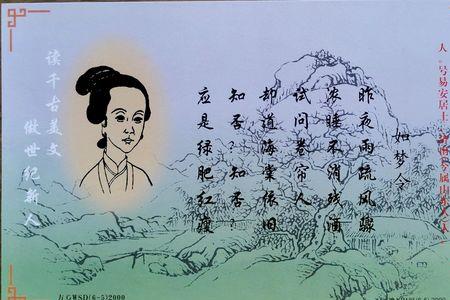 人。号易安居士
如梦令
昨夜雨疏风骤
浓睡不消残酒
试问卷帘人
却道海棠依旧
知否?知否?
应是绿肥红瘦
读千古美文
做世纪新人
GWSD(6-5)2000